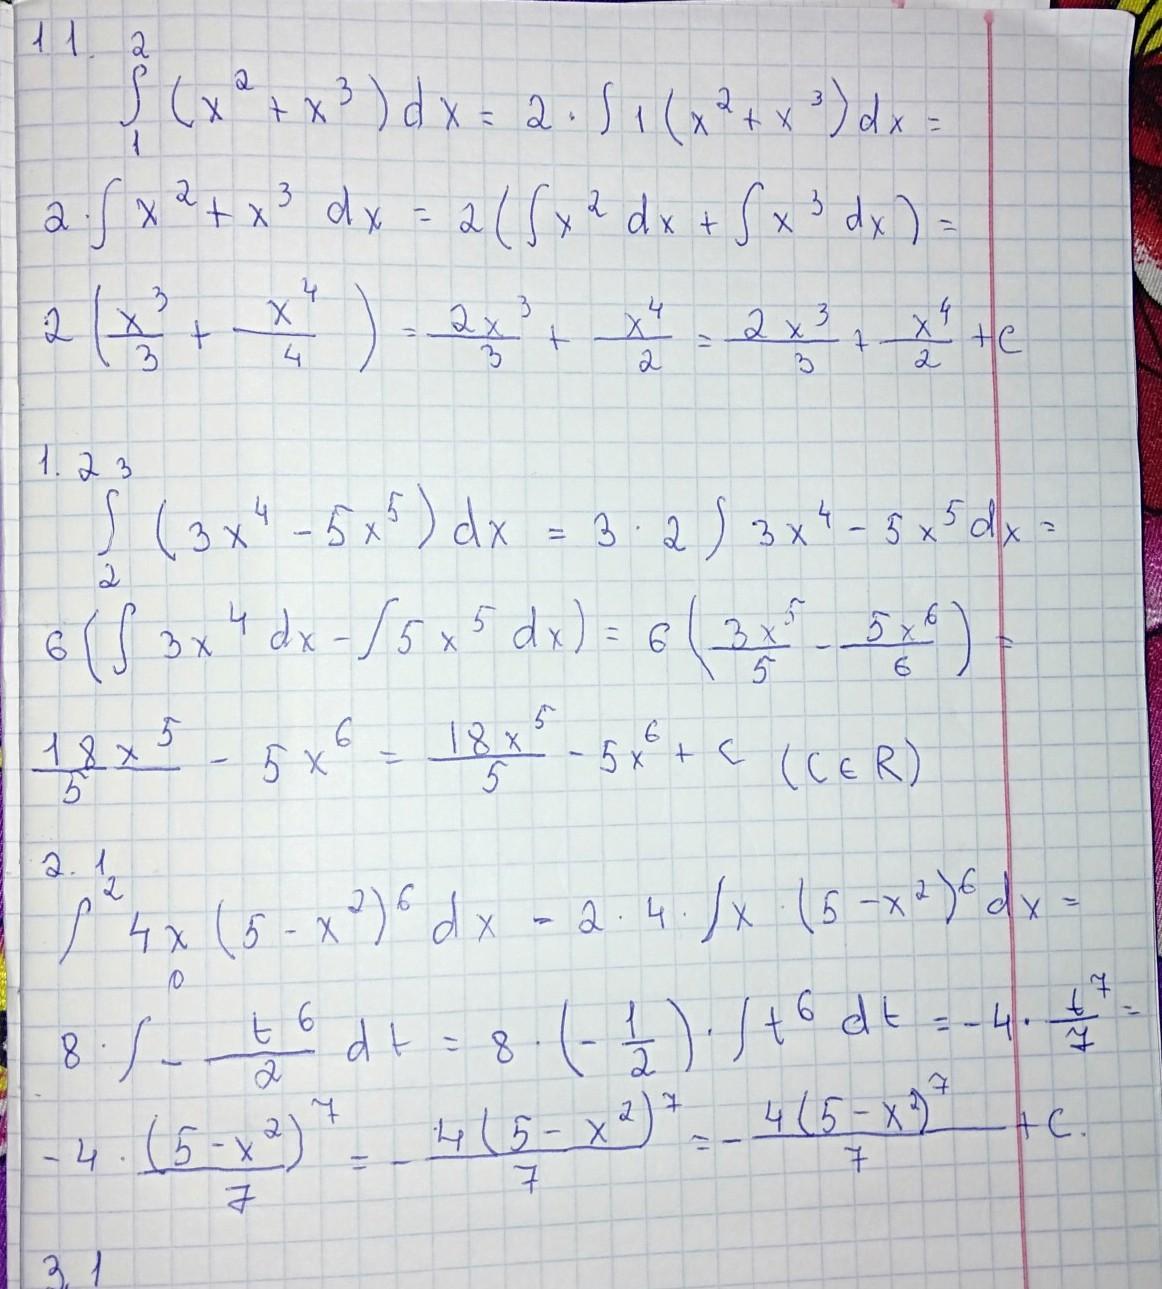 1.1. 2
∫ (x² + x³) dx = 2 · ∫ 1 (x² + x³) dx =
1
2 · ∫ x² + x³ dx = 2 (∫ x² dx + ∫ x³ dx) =
2 (x³/3 + x⁴/4) = 2x³/3 + x⁴/2 = 2x³/3 + x⁴/2 + C
1. 2 3
∫ (3x⁴ - 5x⁵) dx = 3 · 2 ∫ 3x⁴ - 5x⁵ dx =
2
6 (∫ 3x⁴ dx - ∫ 5x⁵ dx) = 6 (3x⁵/5 - 5x⁶/6) =
18x⁵/5 - 5x⁶ = 18x⁵/5 - 5x⁶ + C (C ∈ R)
2. 1
∫ ² 4x (5 - x²)⁶ dx - 2 · 4 · ∫ x · (5 - x²)⁶ dx =
0
8 · ∫ - t⁶/2 dt = 8 · (- 1/2) · ∫ t⁶ dt = -4 · t⁷/7 =
-4 · (5 - x²)⁷/7 = - 4(5 - x²)⁷/7 = - 4(5 - x²)⁷/7 + C.
3. 1